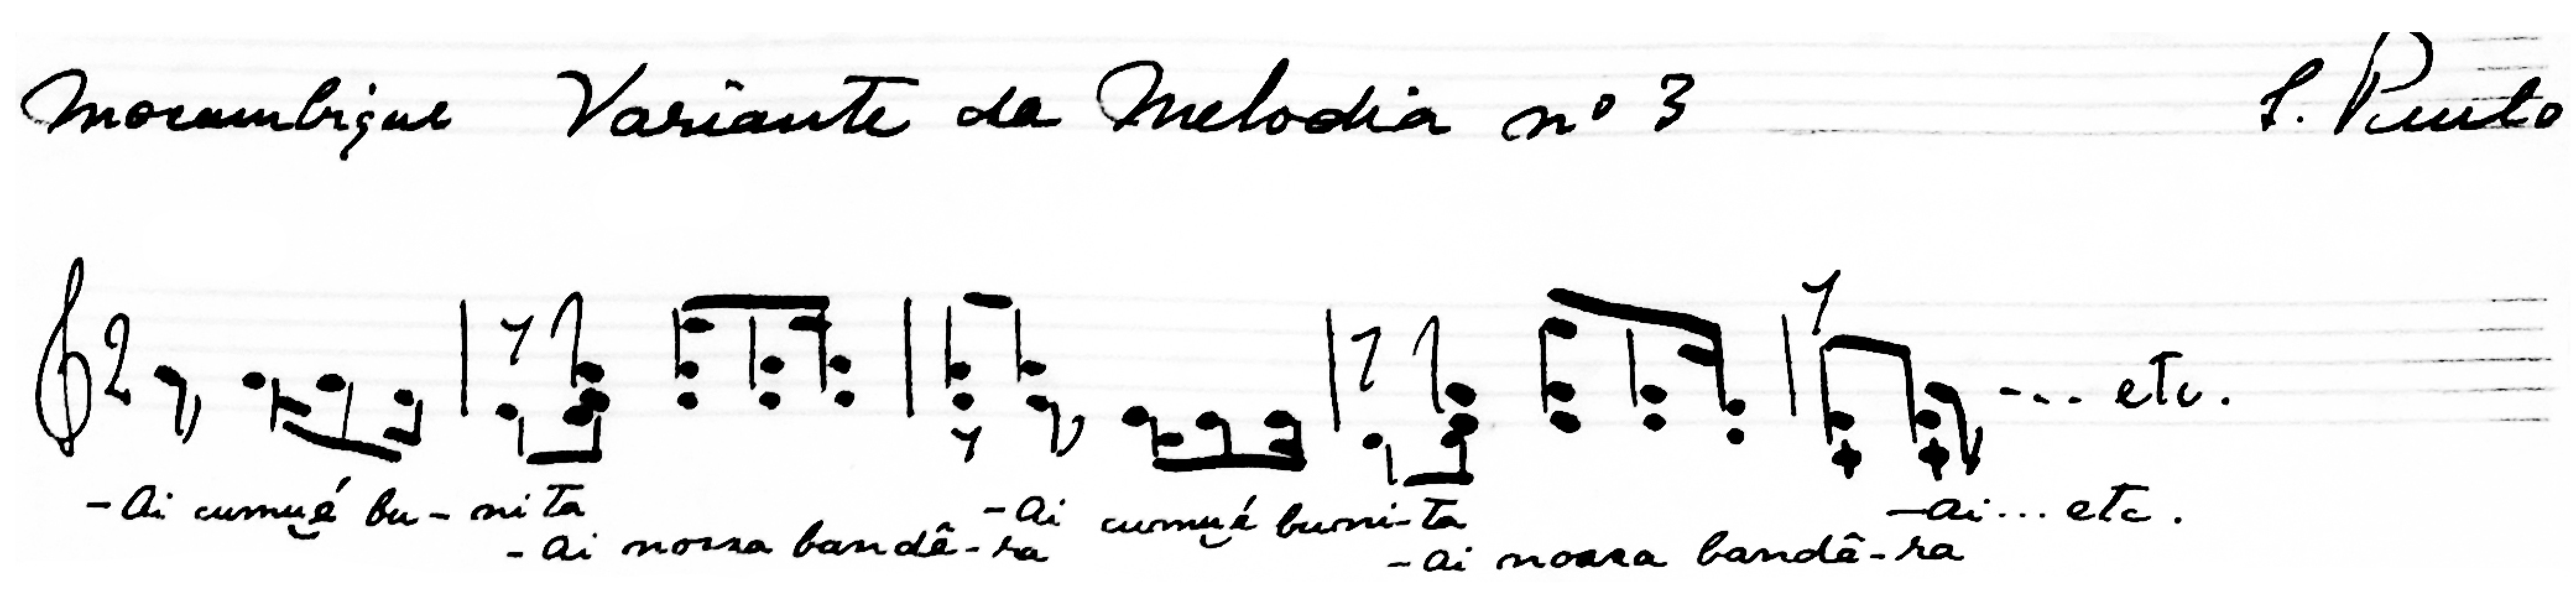 Moçambique Variante da Melodia nº 3 S. Paulo
2
-Ai cumué bu-nita -Ai cumué buni-ta -ai... etc.
--.. etc.
-Ai nossa bandê-ra -Ai nossa bandê-ra